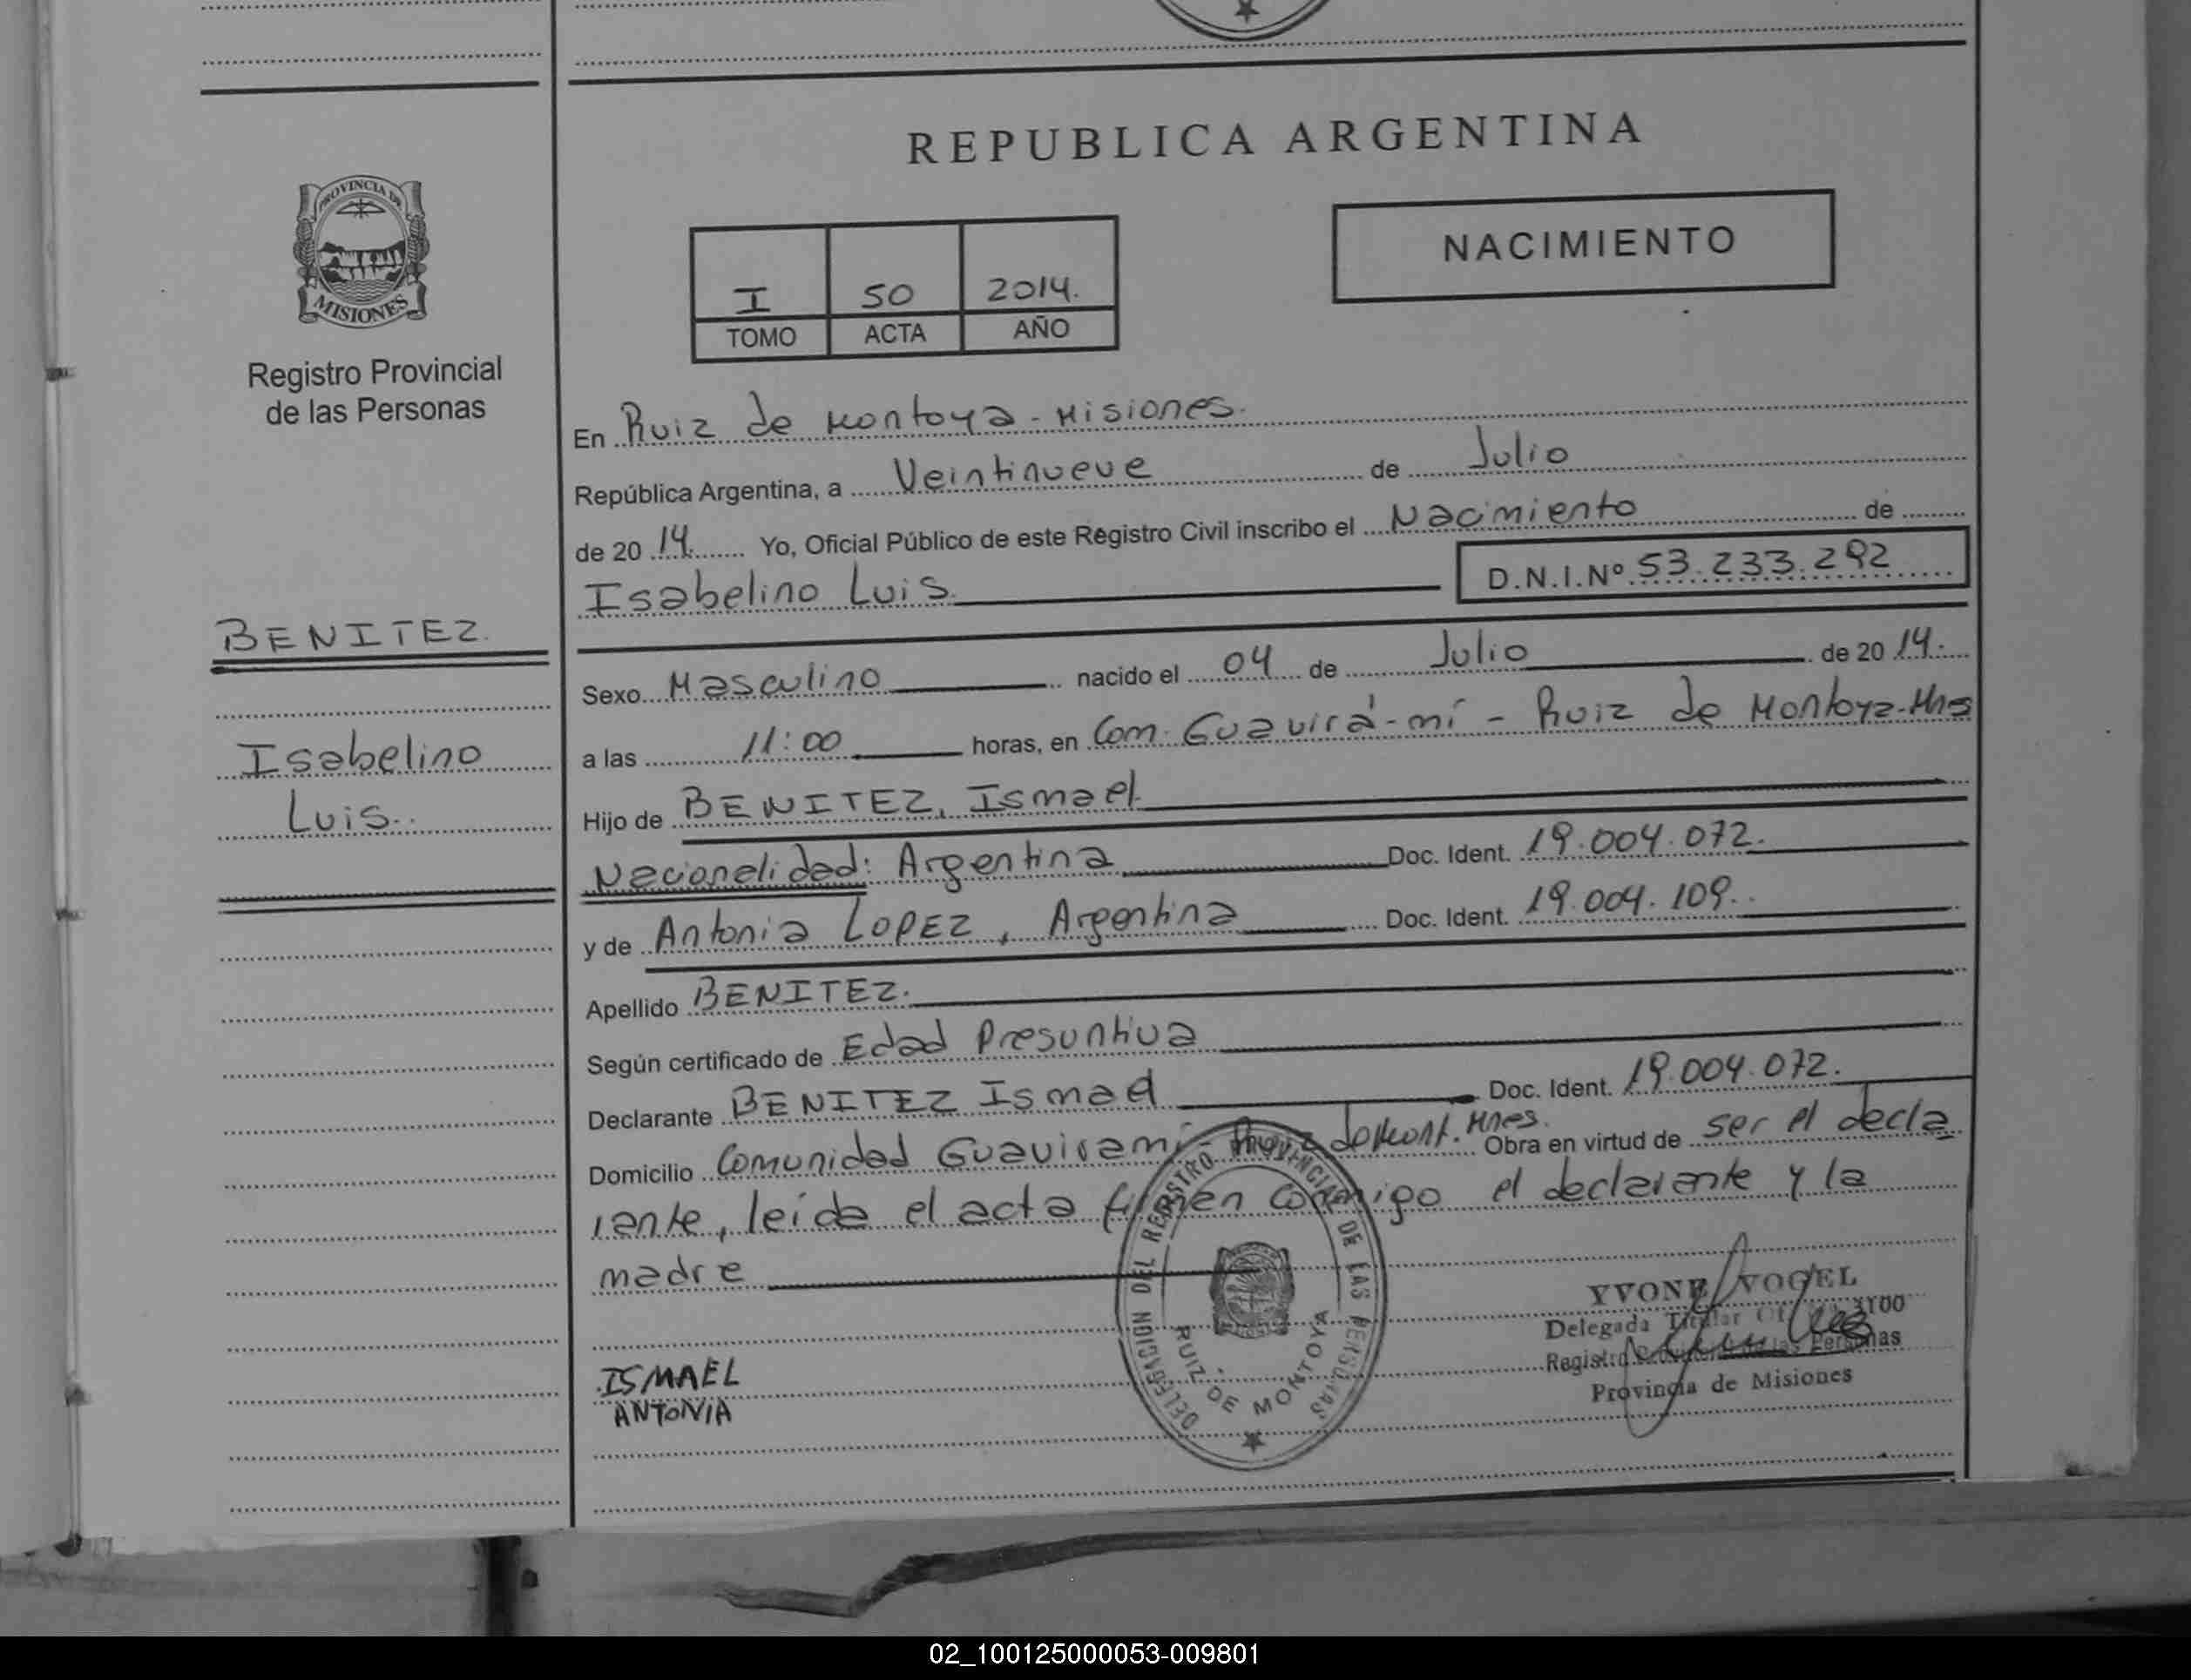 REPUBLICA ARGENTINA
PROVINCIA DE
MISIONES
Registro Provincial
de las Personas
NACIMIENTO
I 50 2014.
TOMO ACTA AÑO
En Ruiz de Montoya - Misiones.
República Argentina, a Veintinueve de Julio
de 20 14. Yo, Oficial Público de este Registro Civil inscribo el Nacimiento de
Isabelino Luis. D.N.I.Nº 53.233.292
BENITEZ.
Isabelino
Luis.
Sexo Masculino nacido el 04 de Julio de 20 14.
a las 11:00 horas, en Com. Guavirá-mí - Ruiz de Montoya-Mns
Hijo de BENITEZ, Ismael.
Nacionalidad: Argentina Doc. Ident. 19.004.072.
y de Antonia LOPEZ, Argentina Doc. Ident. 19.004.109.
Apellido BENITEZ.
Según certificado de Edad Presuntiva
Declarante BENITEZ Ismael Doc. Ident. 19.004.072.
Domicilio Comunidad Guaviramí - Ruiz de Mont. Mnes. Obra en virtud de ser el decla
rante, leída el acta firman conmigo el declarante y la
madre
ISMAEL
ANTONIA
DELEGACION DEL REGISTRO PROVINCIAL DE LAS PERSONAS
RUIZ DE MONTOYA
YVONE VOGEL
Delegada Titular
Registro Provincial de las Personas
Provincia de Misiones
02_100125000053-009801